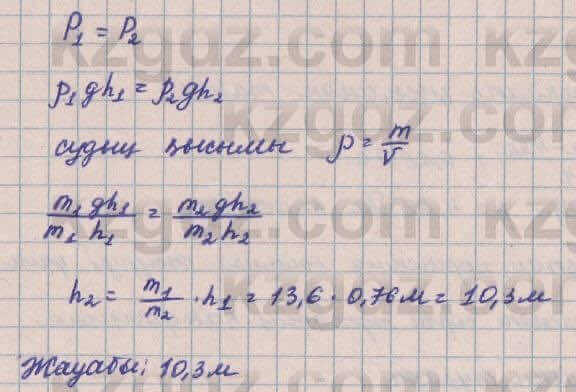 P₁ = P₂
ρ₁gh₁ = ρ₂gh₂
судың қысымы ρ = m/V
m₁gh₁/m₁h₁ = m₂gh₂/m₂h₂
h₂ = m₁/m₂ · h₁ = 13,6 · 0,76м = 10,3м
Жауабы: 10,3м
kzgoz.com